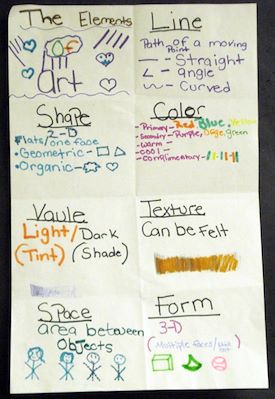 The Elements
of
art
Line
Path of a moving
Point
— Straight
∠ - angle
~ - Curved
Shape
2-D
Flats/one face
• Geometric -
• Organic -
Color
• Primary - Red, Blue, Yellow
• Secondary - Purple, Orage, green
• Warm -
• Cool -
• Complimentary -
Vaule
Light/Dark
(Tint) (Shade)
Texture
Can be Felt
Space
area between
Objects
Form
3-D
(Multiple faces/